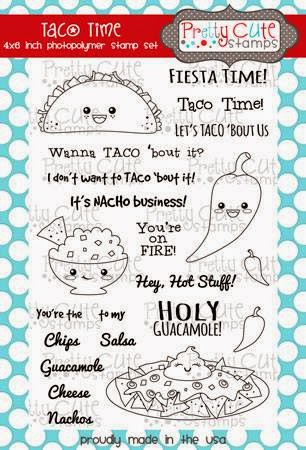 TACO TIME
4x8 inch photopolymer stamp set
Pretty Cute Stamps
FIESTA TIME!
Taco Time!
LET'S TACO 'BOUT US
Wanna TACO 'bout it?
I don't want to TACO 'bout it!
It's NACHO business!
You're
on
FIRE!
Hey, Hot Stuff!
You're the to my
Chips Salsa
Guacamole
Cheese
Nachos
HOLY
GUACAMOLE!
proudly made in the usa